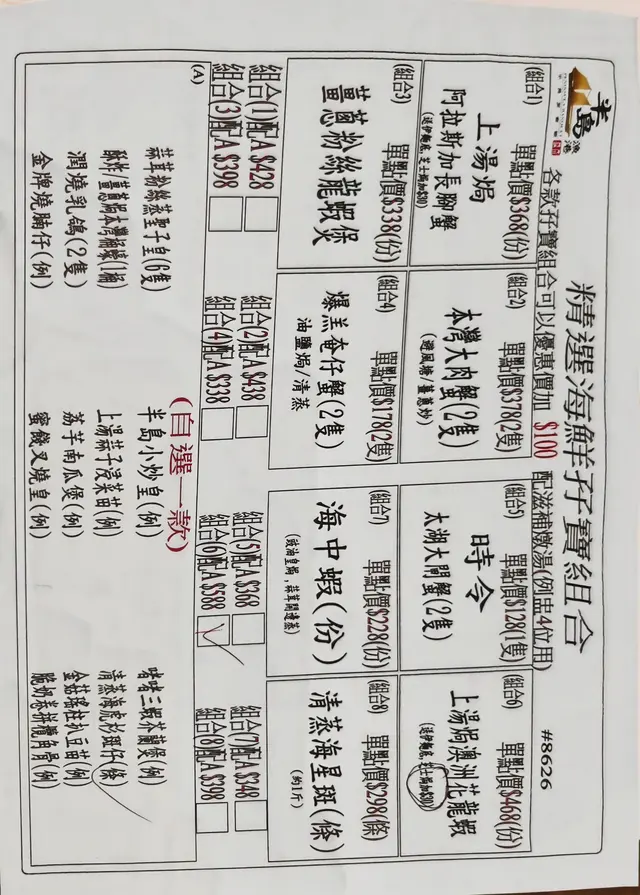 半島
精選海鮮孖寶組合
#8626
各款孖寶組合可以優惠價加 $100 配滋補燉湯(例盅4位用)
(組合1) 單點價$368(份)
上湯焗
阿拉斯加長腳蟹
(延伊麵底,芝士焗加$30)
(組合2) 單點價$378(2隻)
本灣大肉蟹(2隻)
(避風塘/薑蔥炒)
(組合5) 單點價$128(1隻)
時令
太湖大閘蟹(2隻)
(組合6) 單點價$468(份)
上湯焗澳洲花龍蝦
(延伊麵底,芝士焗加$30)
(組合3) 單點價$338(份)
薑蔥粉絲龍蝦煲
(組合4) 單點價$178(2隻)
爆羔奄仔蟹(2隻)
油鹽焗/清蒸
(組合7) 單點價$228(份)
海中蝦(份)
(豉油皇焗,蒜茸開邊蒸)
(組合8) 單點價$298(條)
清蒸海星斑(條)
(約1斤)
組合(1)配A $428
組合(2)配A $438
組合(5)配A $368
組合(7)配A $348
組合(3)配A $398
組合(4)配A $338
組合(6)配A $588
組合(8)配A $398
(A)
(自選一款)
蒜茸粉絲蒸聖子皇(6隻)
半島小炒皇(例)
啫啫三蝦芥蘭煲(例)
上湯蒜子浸菜苗(例)
清蒸海虎紗斑仔(條)
潤燒乳鴿(2隻)
荔芋南瓜煲(例)
金菇瑤柱扒豆苗(例)
金牌燒腩仔(例)
蜜餞叉燒皇(例)
脆奶卷拼欖角骨(例)